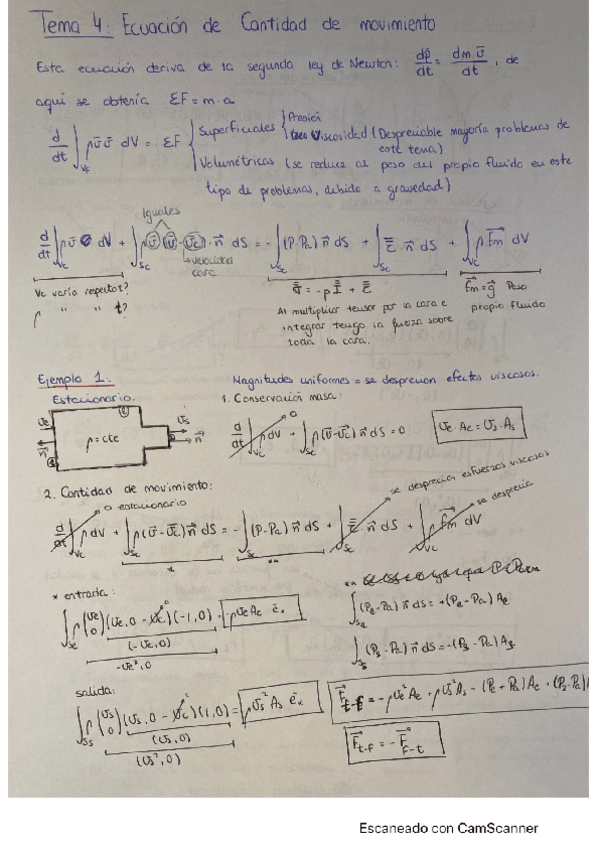 Tema 4: Ecuación de Cantidad de movimiento
Esta ecuación deriva de la segunda ley de Newton: dp̄/dt = dm v̄/dt, de
aquí se obtenía ΣF = m·a
d/dt ∫Vc ρ v̄ dV = ΣF { Superficiales { Presión
Viscosidad (Despreciable mayoría problemas de
este tema)
Volumétricas (se reduce al peso del propio fluido en este
tipo de problemas, debido a gravedad)
Iguales
d/dt ∫Vc ρ v̄ dV + ∫Sc ρ (v̄) (v̄ - v̄c)·n̄ dS = -∫Sc (P-Pa) n̄ dS + ∫Sc τ̿ · n̄ dS + ∫Vc ρ Fm dV
velocidad
cara
Vc varía respecto t?
ρ " " t?
σ̿ = -p I̿ + τ̿
Al multiplicar tensor por la cara e
integrar tengo la fuerza sobre
toda la cara.
Fm = g̅ Peso
propio fluido
Ejemplo 1:
Magnitudes uniformes = se desprecian efectos viscosos.
Estacionario.
ve n̄ ρ = cte vs n̄
1. Conservación masa:
d/dt ∫Vc ρ dV + ∫Sc ρ (v̄ - v̄c) n̄ dS = 0
0
ve Ae = vs·As
2. Cantidad de movimiento:
0 estacionario
se desprecian esfuerzos viscosos
se desprecia
d/dt ∫Vc ρ dV + ∫Sc ρ (v̄ - v̄c) n̄ dS = -∫Sc (P-Pa) n̄ dS + ∫Sc τ̿ n̄ dS + ∫Vc ρ Fm dV
* **
* entrada:
∫Se ρ (ve 0) (ve, 0 - vc) (-1, 0) = -ρ ve² Ae ēx
(-ve, 0)
-ve², 0
**
∫Se (Pe-Pa) n̄ dS = +(Pe-Pa) Ae
∫Ss (Ps-Pa) n̄ dS = -(Ps-Pa) As
salida:
∫Ss ρ (vs 0) (vs, 0 - vc) (1, 0) = ρ vs² As ēx
(vs, 0)
(vs², 0)
Ft-f = -ρ ve² Ae + ρ vs² As - (Pe + Pa) Ae + (Ps-Pa)
Ft-f = -Ff-t
Escaneado con CamScanner